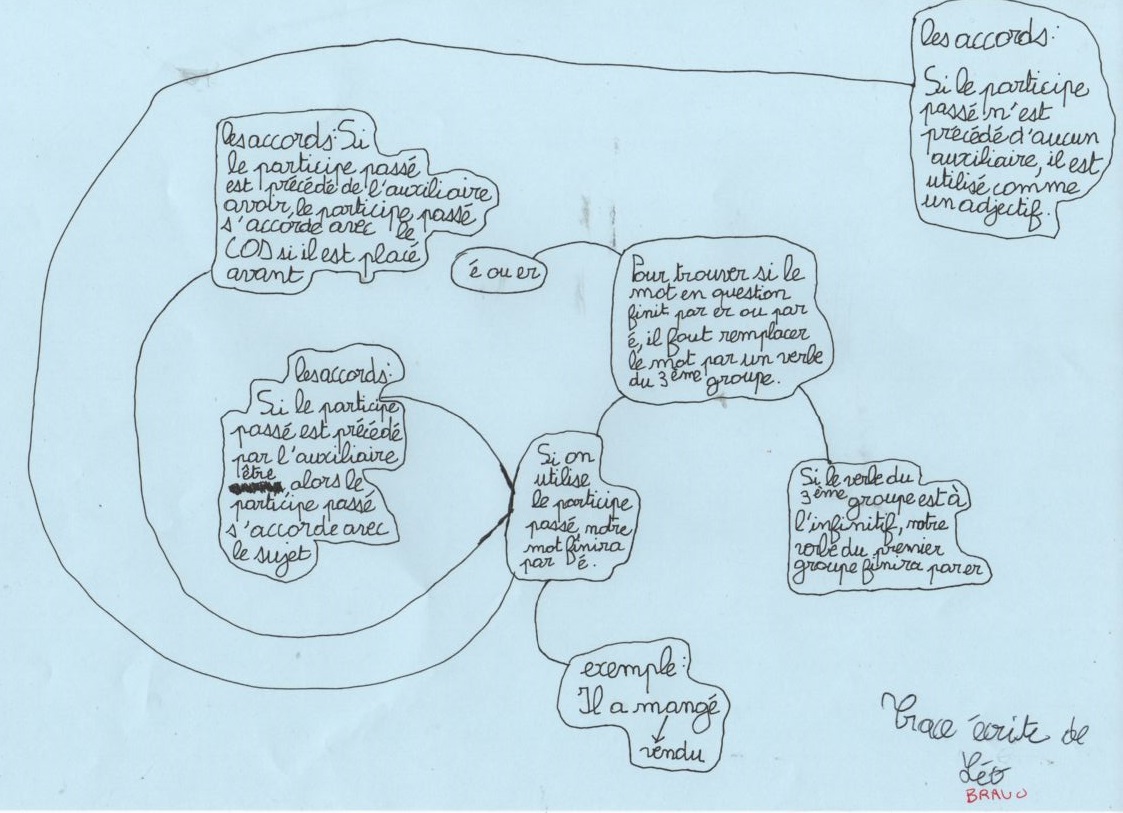 les accords:
Si le participe
passé n'est
précédé d'aucun
auxiliaire, il est
utilisé comme
un adjectif.
les accords: Si
le participe passé
est précédé de l'auxiliaire
avoir, le participe passé
s'accorde avec le
COD si il est placé
avant
é ou er
Pour trouver si le
mot en question
finit par er ou par
é, il faut remplacer
le mot par un verbe
du 3ème groupe.
les accords:
Si le participe
passé est précédé
par l'auxiliaire
être
alors le
participe passé
s'accorde avec
le sujet
Si on
utilise
le participe
passé, notre
mot finira
par é.
Si le verbe du
3ème groupe est à
l'infinitif, notre
verbe du premier
groupe finira par er
exemple:
Il a mangé
vendu
Trace écrite de
Léo
BRAVO